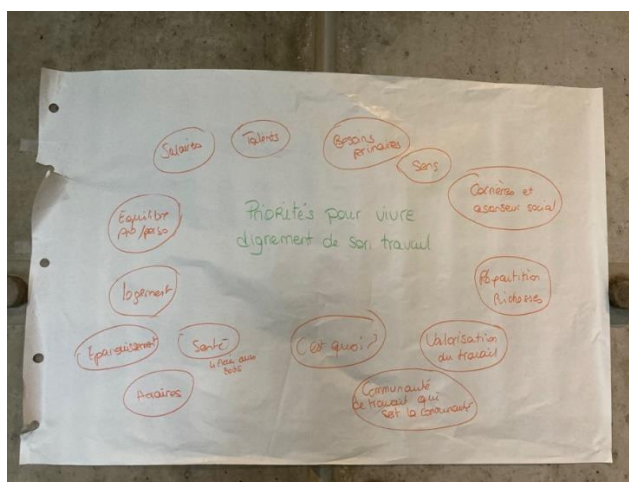 Salaires
Talents
Besoins
primaires
Sens
Carrières et
ascenseur social
Priorités pour vivre
dignement de son travail
Equilibre
pro/perso
logement
Répartition
Richesses
Epanouissement
Santé
C'est quoi?
Valorisation
du travail
Horaires
Communauté
de travail qui
sert la communauté